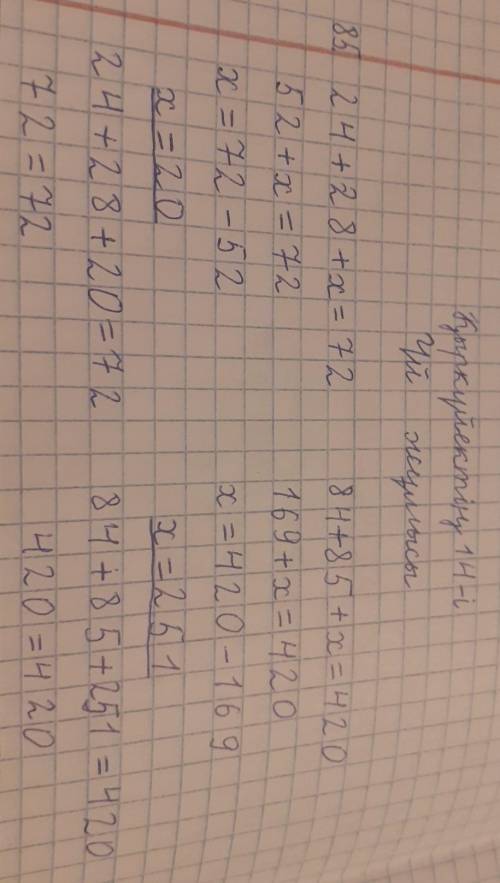 Қыркүйектің 14-і
Үй жұмысы
85 24+28+x=72 84+85+x=420
52+x=72 169+x=420
x=72-52 x=420-169
x=20 x=251
24+28+20=72 84+85+251=420
72=72 420=420